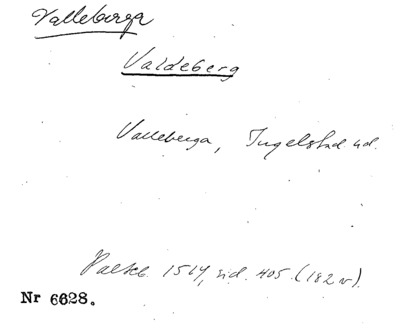 Valleberga
Valdeberg
Valleberga, Ingelstad hd.
Palteb. 1517, sid. 405. (182 v).
Nr 6628.